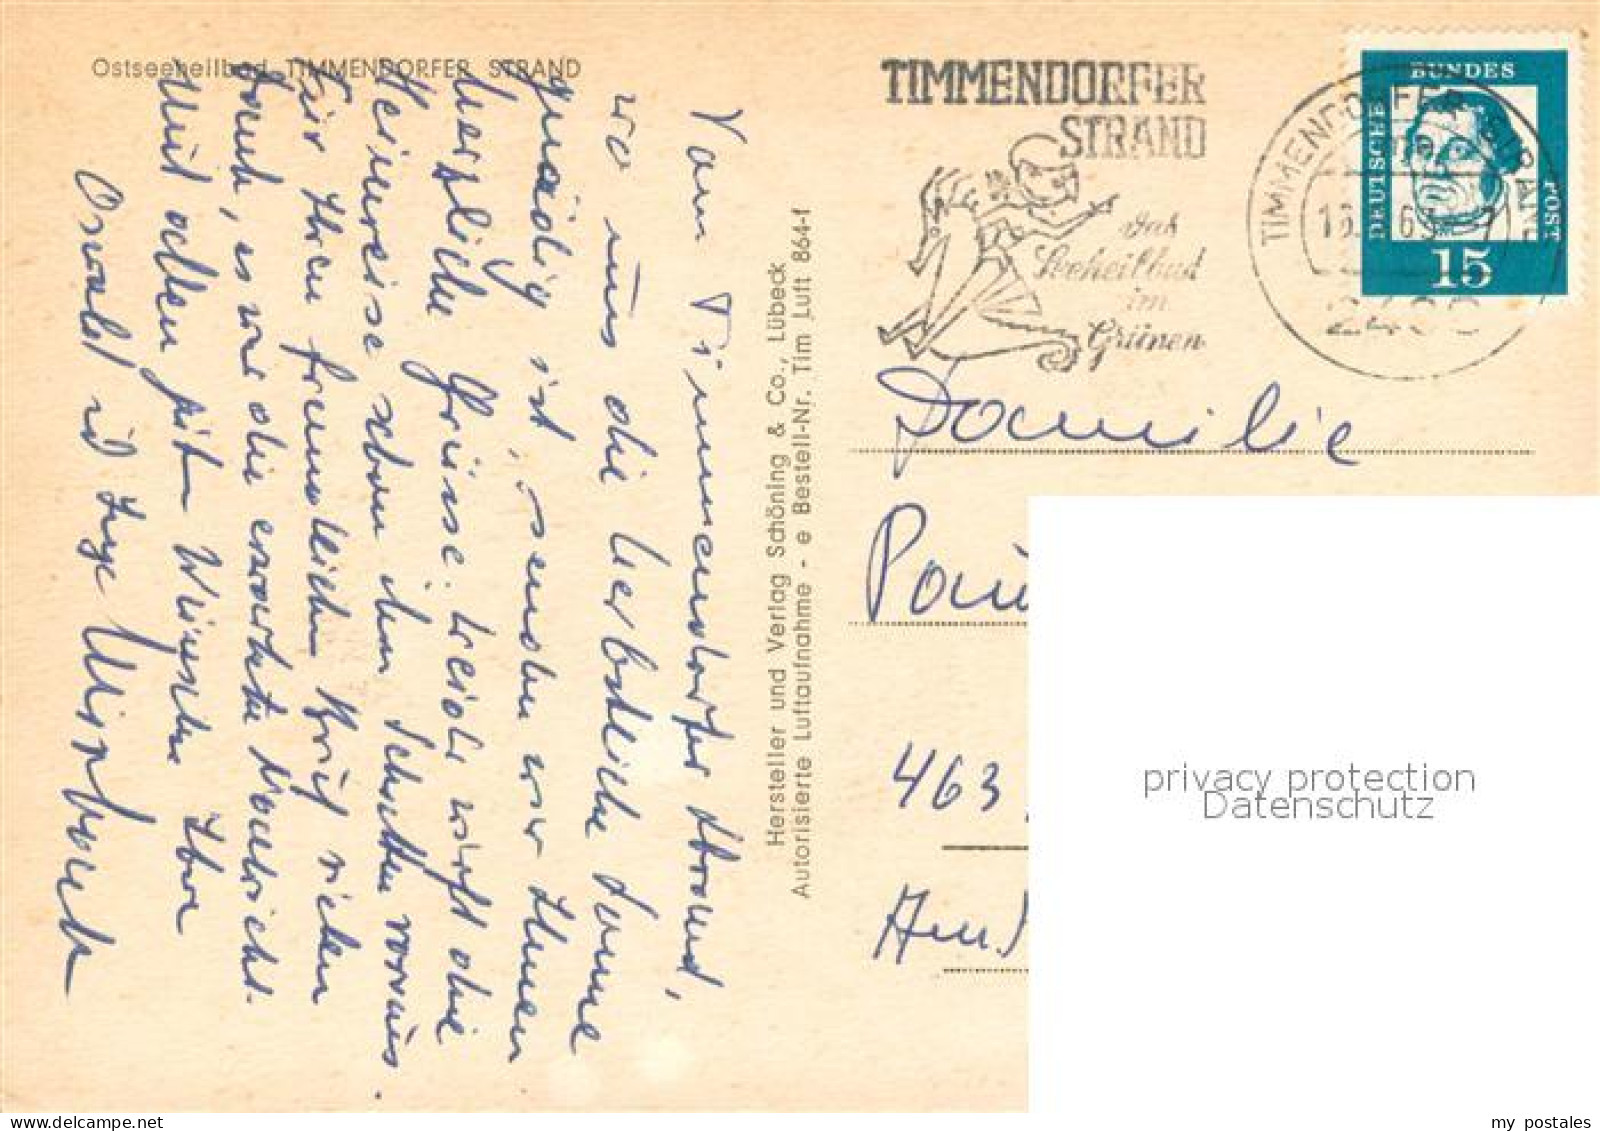 Ostseeheilbad TIMMENDORFER STRAND
Vom Timmendorfer Strand,
wo uns die herbstliche Sonne
gnädig ist, senden wir Ihnen
herzliche Grüsse. Leider wirft die
Heimreise schon ihren Schatten voraus.
Für Ihren freundlichen Brief vielen
Dank, es war die erwartete Nachricht.
Mit allen guten Wünschen Ihre
Oswald u Inge
Hersteller und Verlag Schöning & Co., Lübeck
Autorisierte Luftaufnahme - e Bestell-Nr. Tim Luft 864-f
TIMMENDORFER
STRAND
das
Seeheilbad
im
Grünen
TIMMENDORFER STRAND
2408
DEUTSCHE
BUNDES
POST
15
Familie
463
privacy protection
Datenschutz
my postales